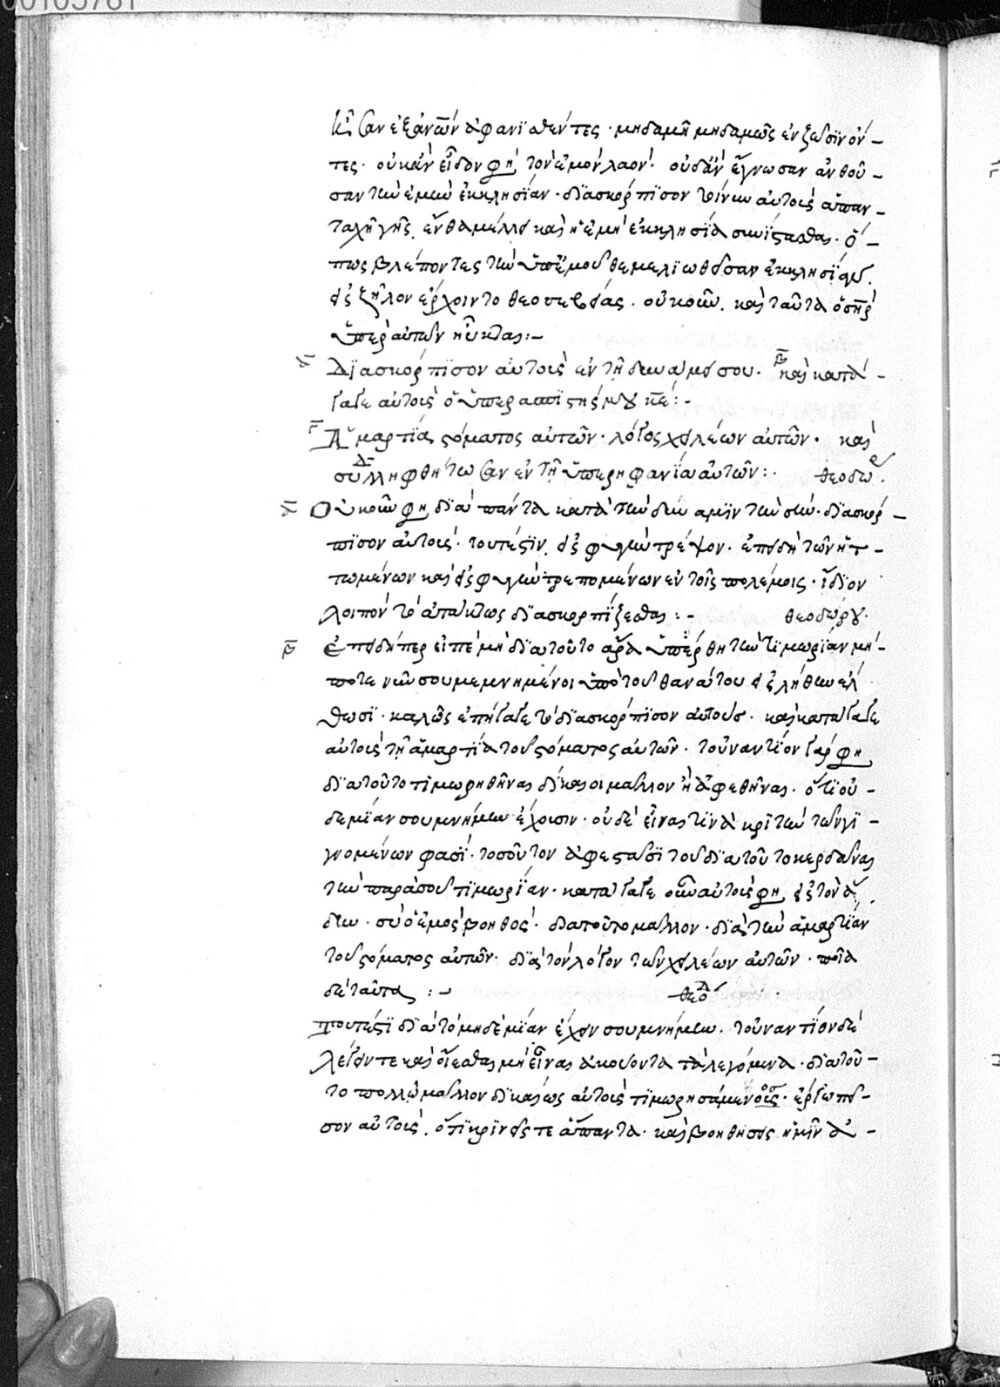 00105761
ἐξανῶν ἀφανισθέντες · μηδαμῆ μηδαμῶς ἐν ξωσιν ὄν-
τες · οὐκ ἂν εἶδον φη τὸν ἐμὸν λαὸν · οὐδ' ἂν ἔγνωσαν ἀνθοῦ-
σαν τὴν ἐμὴν ἐκκλησίαν · διασκόρπισον τοίνυν αὐτοὺς ἁπαν-
ταχῆ γῆς, ἔνθα μέλλει καὶ ἡ ἐμὴ ἐκκλησία συνίστασθαι · ὅ-
πως βλέποντες τὴν ὑπ' ἐμοῦ θεμελιωθεῖσαν ἐκκλησίαν,
εἰς ζῆλον ἔρχοιντο θεοσεβείας · οὐκοῦν, καὶ ταῦτα ὁ σὴρ
ὑπὲρ αὐτῶν ηὖκται :-
α Διασκόρπισον αὐτοὺς ἐν τῇ δυνάμει σου · β καὶ κατά-
γαγε αὐτοὺς ὁ ὑπερασπιστής μου κε :-
γ Ἁμαρτία στόματος αὐτῶν · λόγος χειλέων αὐτῶν · καὶ
δ συλληφθήτωσαν ἐν τῇ ὑπερηφανία αὐτῶν : θεοδω
α Οὐκοῦν φη διὰ πάντα κατὰ τὴν δύναμιν τὴν σὴν · διασκόρ-
πισον αὐτοὺς · τουτέστιν, εἰς φυγὴν τρέψον · ἐπειδὴ τῶν ἡτ-
τωμένων καὶ εἰς φυγὴν τρεπομένων ἐν τοῖς πολέμοις · ἴδιον
λοιπὸν τὸ ἀτάκτως διασκορπίζεσθαι :- θεοδώρου
β Ἐπειδήπερ εἶπε μὴ διὰ τοῦτο ἄρα ὑπέρθη τὴν τιμωρίαν μή-
ποτε νῦν σου μεμνημένοι ὑπὸ τοῦ θανάτου εἰς λήθην ἔλ
θωσι · καλῶς ἐπήγαγε τὸ διασκόρπισον αὐτούς · καὶ κατάγαγε
αὐτοὺς τῇ ἁμαρτία τοῦ στόματος αὐτῶν · τοὐναντίον γάρ φη
διὰ τοῦτο τιμωρηθῆναι δίκαιοι μᾶλλον ἢ ἀφεθῆναι · ὅτι οὐ-
δεμίαν σου μνήμην ἔχουσιν · οὐδὲ εἶναι τινὰ κριτὴν τῶν γι-
γνομένων φασί · τοσοῦτον ἀφεστᾶσι τοῦ διὰ τοῦτο κερδᾶναι
τὴν παρὰ σοῦ τιμωρίαν · κατάγαγε οὖν αὐτούς φη εἰς τὸν ἅ
δην · σὺ ὁ ἐμὸς βοηθός · διὰ τοῦτο μᾶλλον · διὰ τὴν ἁμαρτίαν
τοῦ στόματος αὐτῶν · διὰ τὸν λόγον τῶν χειλέων αὐτῶν · ποῖα
δὲ ταῦτα :- θεοδ
τουτέστι διὰ τὸ μηδεμίαν ἔχειν σου μνήμην · τοὐναντίον δὲ
λέγειν τε καὶ οἴεσθαι μὴ εἶναι ἀκούοντα τὰ λεγόμενα · διὰ τοῦ-
το πολλῷ μᾶλλον δικαίως αὐτοὺς τιμωρησάμενος · ἔργω πεῖ-
σον αὐτοὺς, ὅτι κρίνεις τε ἅπαντα · καὶ βοηθήσεις ἡμῖν ἀ-